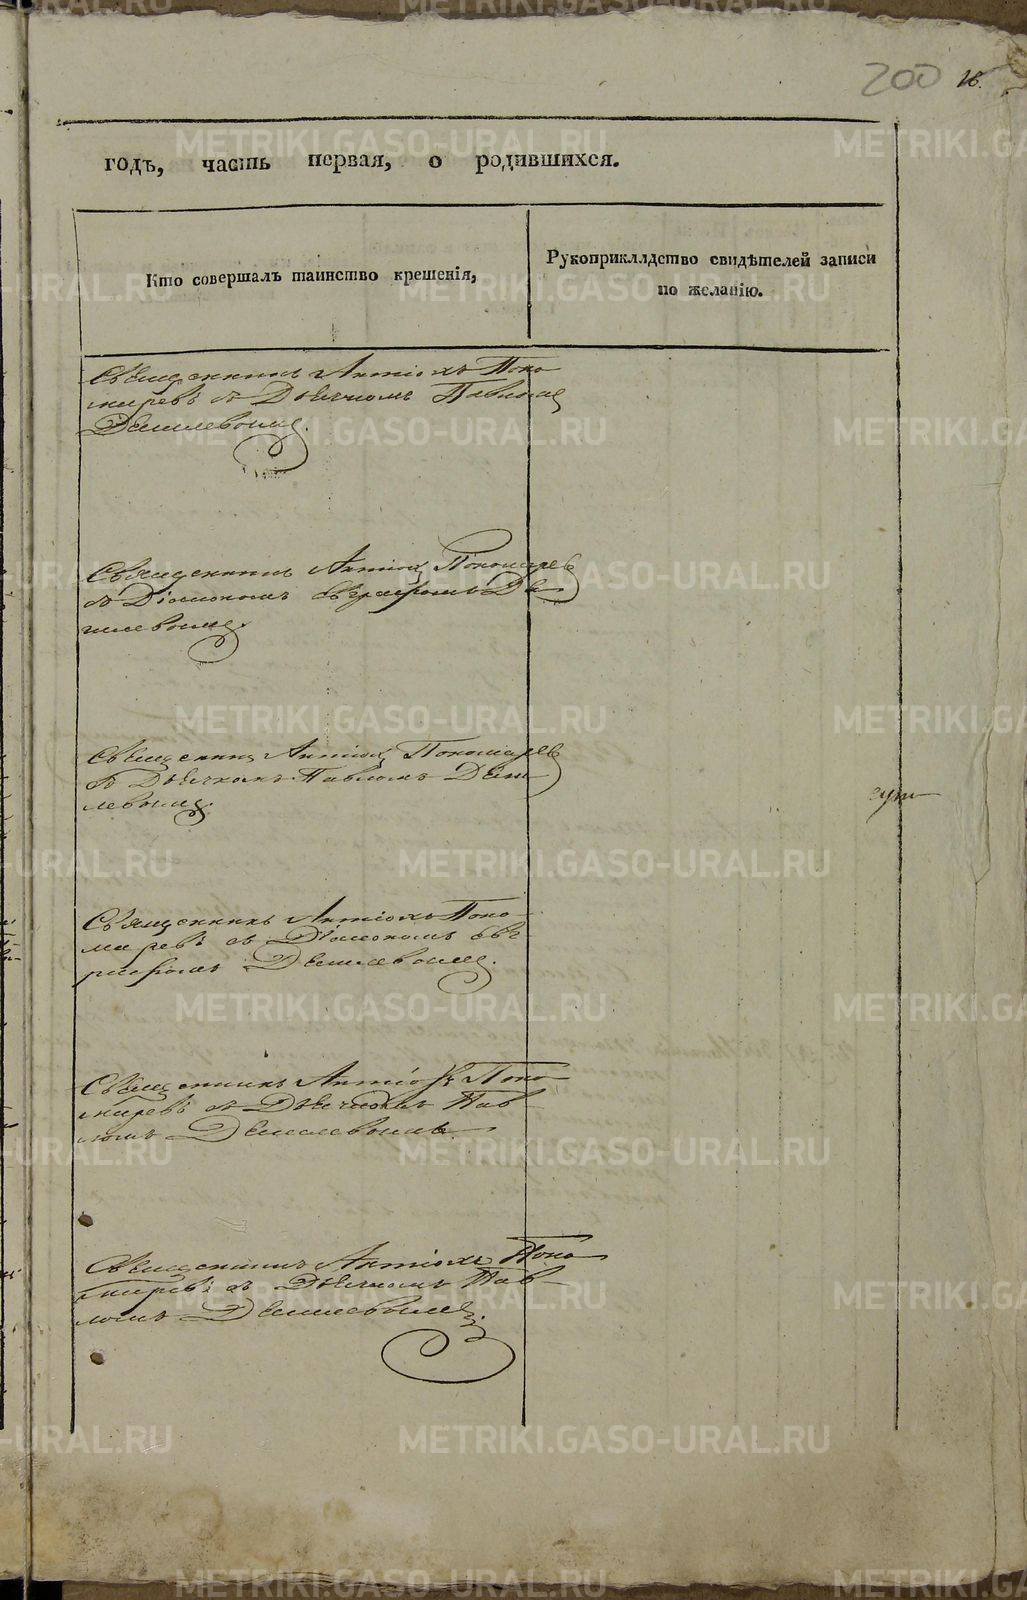 200 18.
годъ, часть первая, о родившихся.
Кто совершалъ таинство крещенія,
Рукоприкладство свидѣтелей записи
по желанію.
Священникъ Антіохъ Поно
маревъ съ Дьячкомъ Павломъ
Демилевомъ.
Священникъ Антіохъ Пономарев
съ Діакономъ Евграфомъ Де
милевомъ.
Священникъ Антіохъ Пономарев
съ Дьячкомъ Павломъ Деми
левомъ.
Священникъ Антіохъ Поно
маревъ съ Діакономъ Евг
рафомъ Демилевомъ.
Священникъ Антіохъ Поно
маревъ съ Дьячкомъ Пав
ломъ Демилевомъ.
Священникъ Антіохъ Поно
маревъ съ Дьячкомъ Пав
ломъ Демилевымъ.
METRIKI.GASO-URAL.RU